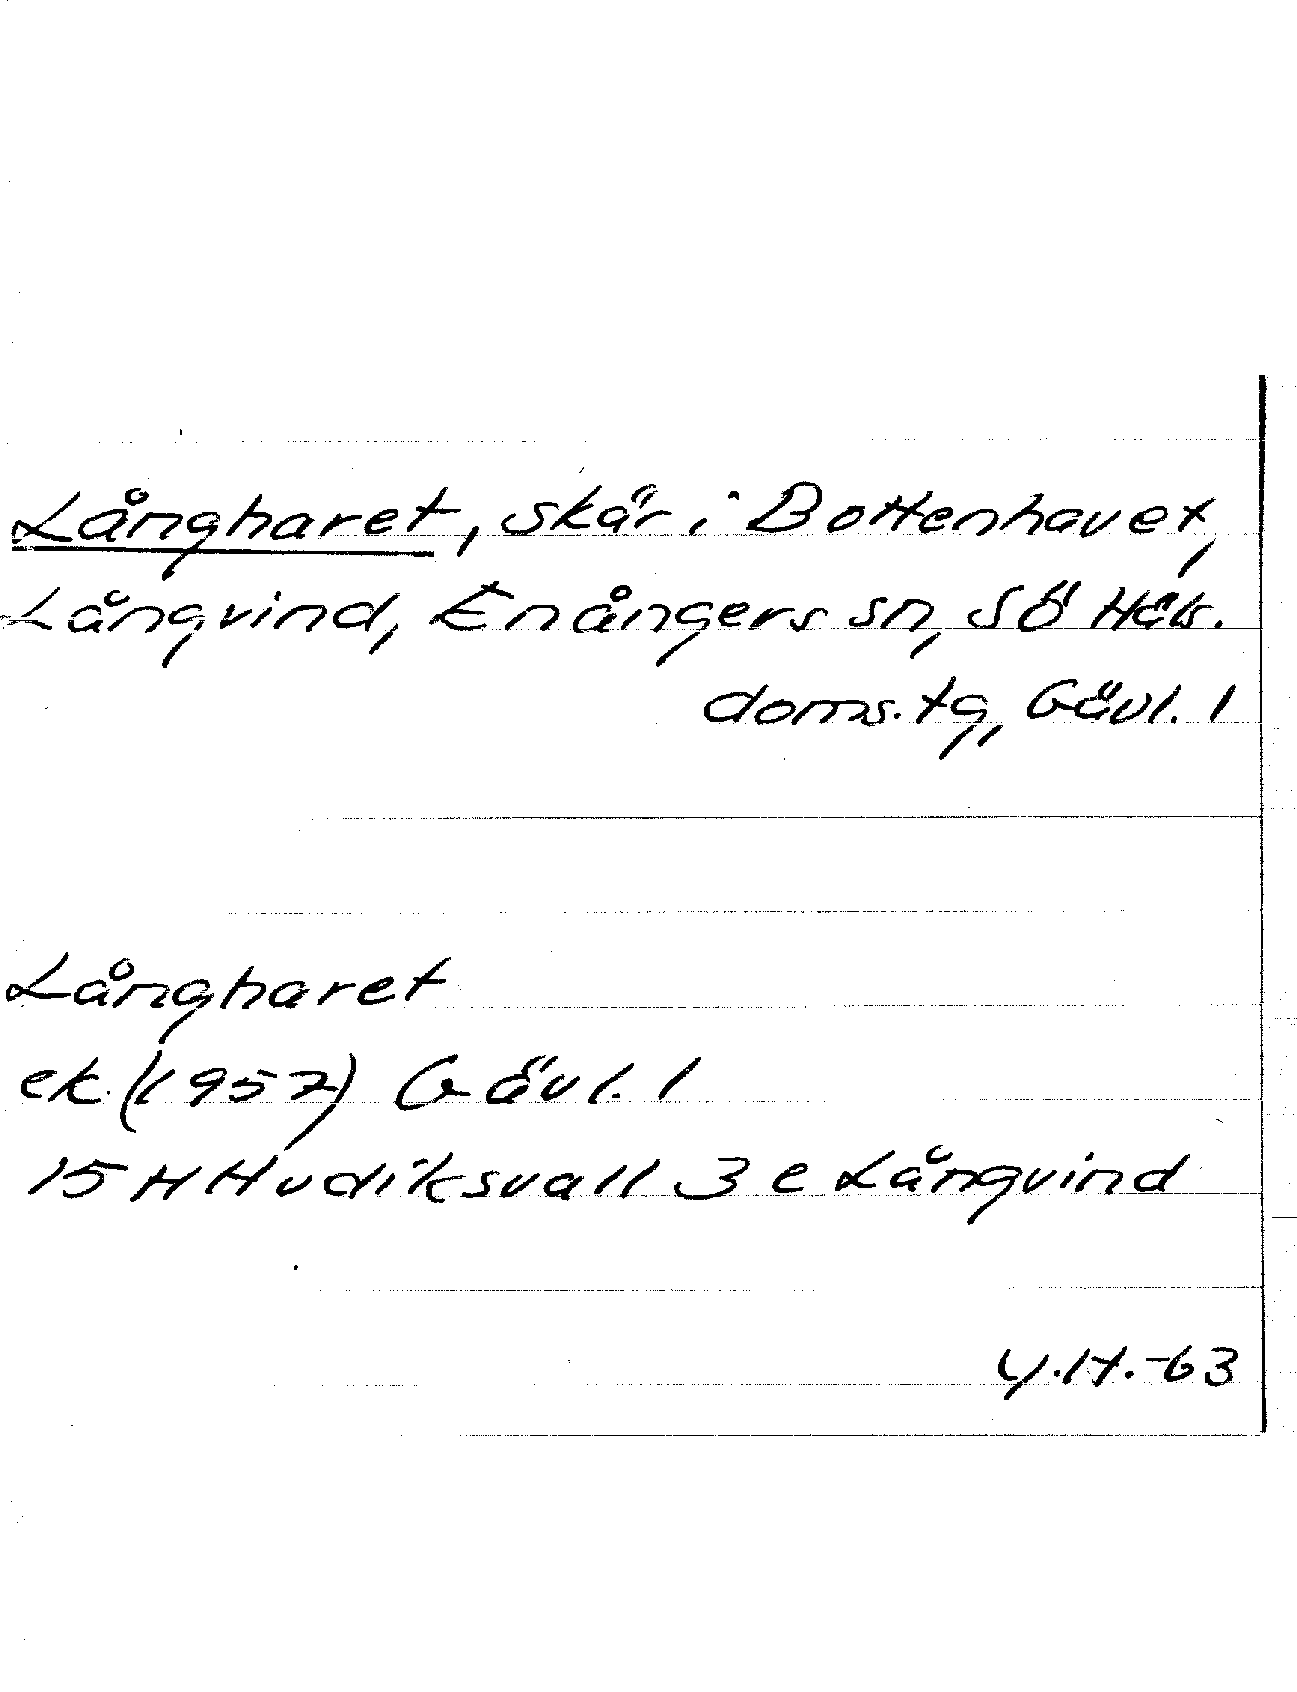 Långharet, skär i Bottenhavet,
Långvind, Enångers sn, Sö Häls.
doms.tg, Gävl. l
Långharet
ek. (1957) Gävl. l
15 H Hudiksvall 3 e Långvind
-63